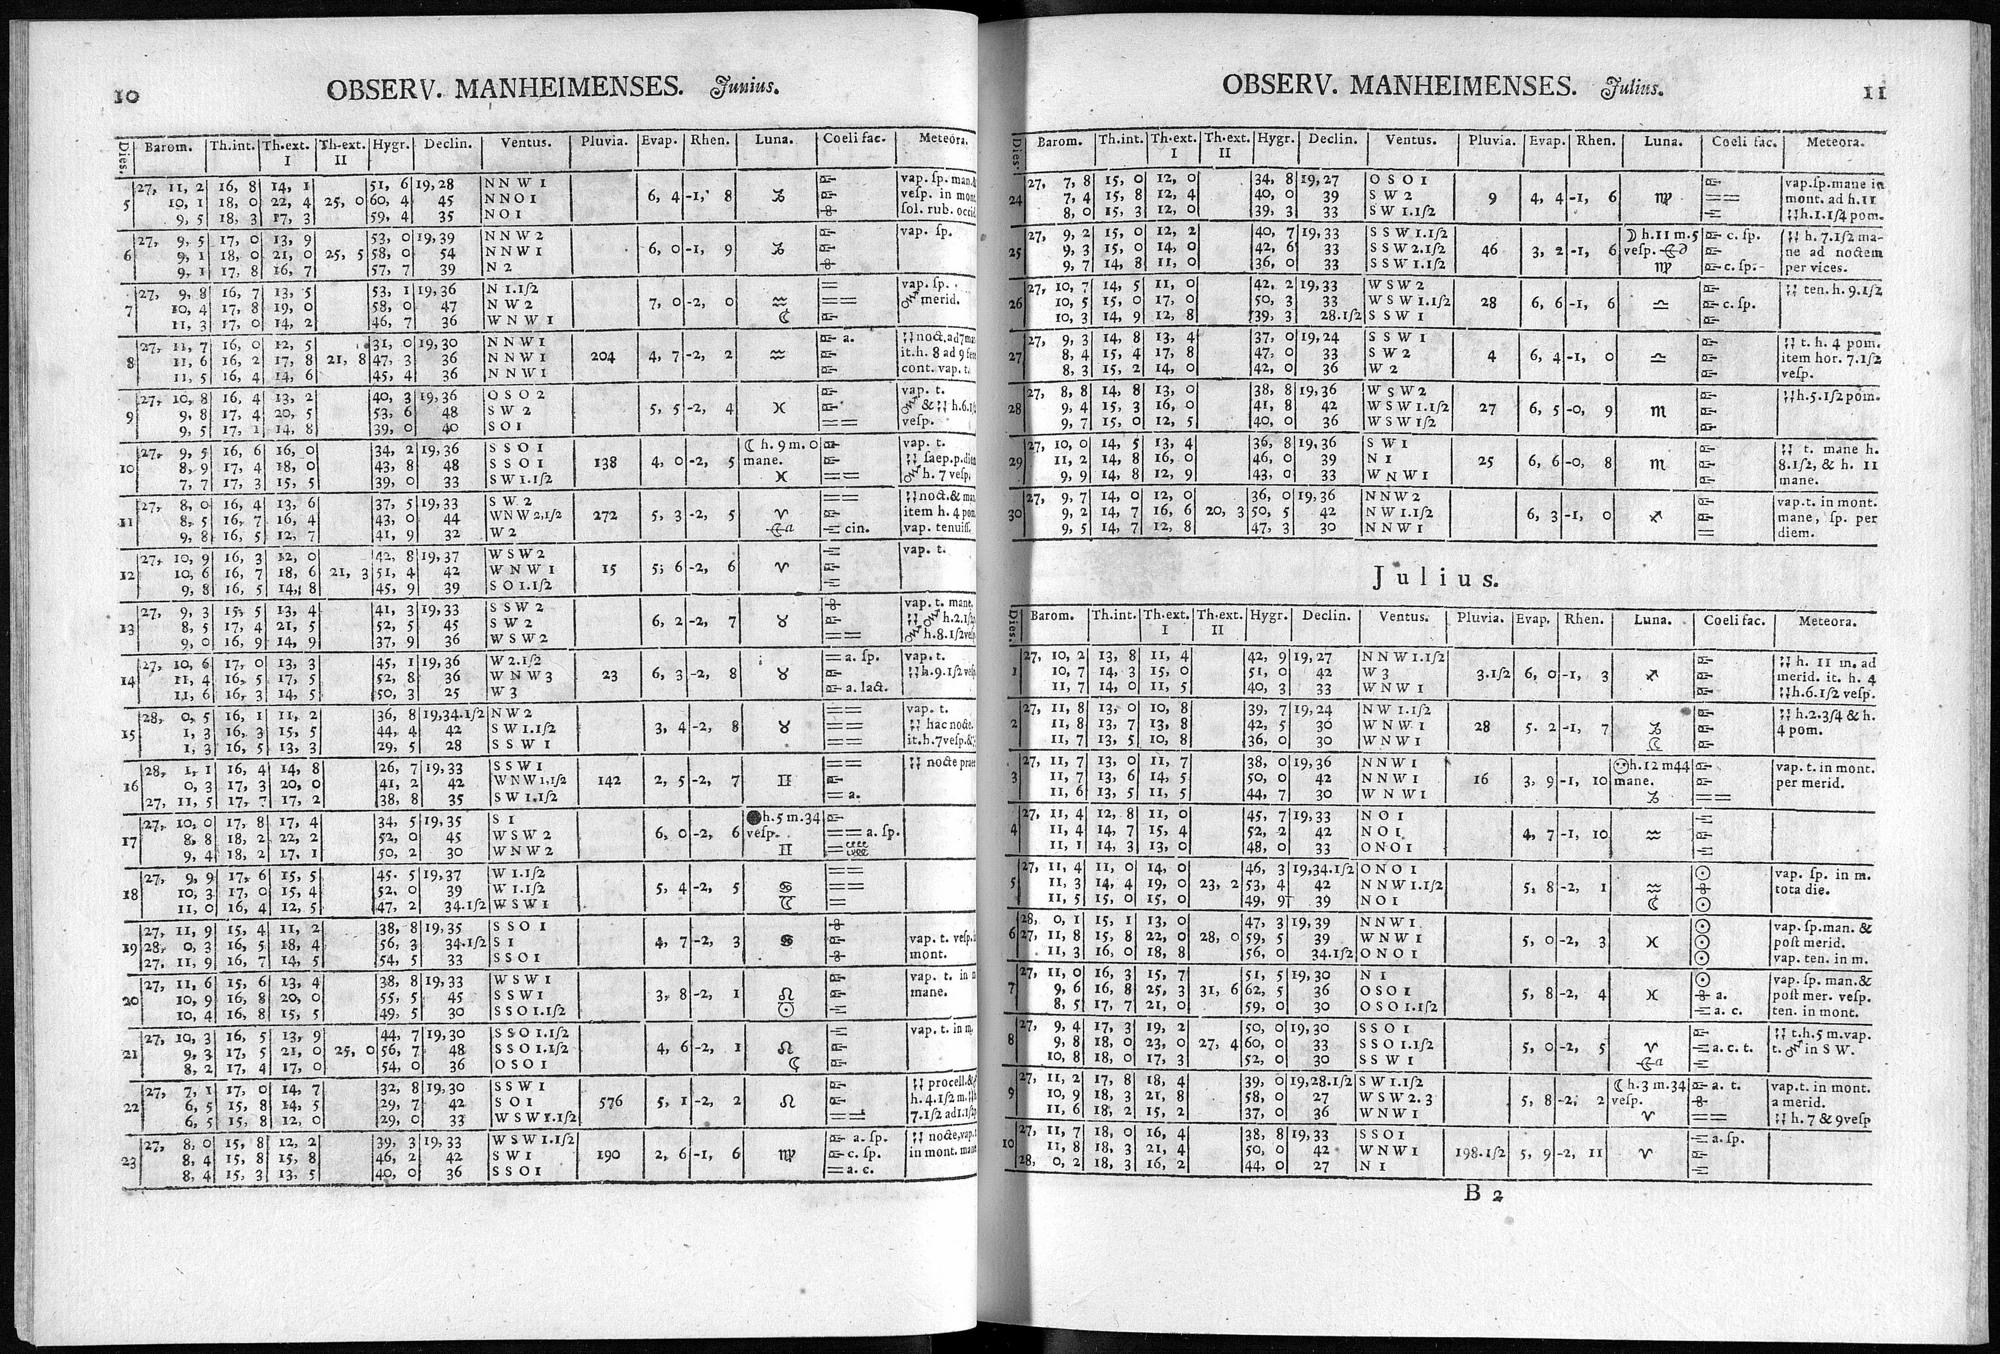 10 OBSERV. MANHEIMENSES. Junius.
Dies. Barom. Th.int. Th.ext. I Th.ext. II Hygr. Declin. Ventus. Pluvia. Evap. Rhen. Luna. Coeli fac. Meteora.
27, 11, 2 16, 8 14, 1 51, 6 19, 28 N N W 1 vap. ſp. man.&
5 10, 1 18, 0 22, 4 25, 0 60, 4 45 N N O 1 6, 4 -1, 8 ♑ veſp. in mont.
9, 5 18, 3 17, 3 59, 4 35 N O 1 ſol. rub. occid.
27, 9, 5 17, 0 13, 9 53, 0 19, 39 N N W 2 vap. ſp.
6 9, 1 18, 0 21, 0 25, 5 58, 0 54 N N W 1 6, 0 -1, 9 ♑
9, 1 17, 8 16, 7 57, 7 39 N 2
27, 9, 8 16, 7 13, 5 53, 1 19, 36 N 1.1/2 vap. ſp.
7 10, 4 17, 8 19, 0 58, 0 47 N W 2 7, 0 -2, 0 ♒ merid.
11, 3 17, 0 14, 2 46, 7 36 W N W 1 ☾
27, 11, 7 16, 0 12, 5 31, 0 19, 30 N N W 1 a. noct. ad 7 mat.
8 11, 6 16, 2 17, 8 21, 8 47, 3 36 N N W 1 204 4, 7 -2, 2 ♒ it.h. 8 ad 9 fere
11, 5 16, 4 14, 6 45, 4 36 N N W 1 cont. vap. t.
27, 10, 8 16, 4 13, 2 40, 3 19, 36 O S O 2 vap. t.
9 9, 8 17, 4 20, 5 53, 6 48 S W 2 5, 5 -2, 4 ♓ & h.6.1/2
9, 5 17, 1 14, 8 39, 0 40 S O 1 veſp.
27, 9, 5 16, 6 16, 0 34, 2 19, 36 S S O 1 ☾ h. 9 m. 0 vap. t.
10 8, 9 17, 4 18, 0 43, 8 48 S S O 1 138 4, 0 -2, 5 mane. ſaep.p.diem
7, 7 17, 3 15, 5 39, 0 33 S W 1.1/2 ♓ h. 7 veſp.
27, 8, 0 16, 4 13, 6 37, 5 19, 33 S W 2 noct.& man.
11 8, 5 16, 7 16, 4 43, 0 44 WNW 2,1/2 272 5, 3 -2, 5 ♈ item h. 4 pom.
9, 8 16, 5 12, 7 41, 9 32 W 2 cin. vap. tenuiſſ.
27, 10, 9 16, 3 12, 0 42, 8 19, 37 W S W 2 vap. t.
12 10, 6 16, 7 18, 6 21, 3 51, 4 42 W N W 1 15 5, 6 -2, 6 ♈
9, 8 16, 5 14, 8 45, 9 39 S O 1.1/2
27, 9, 3 15, 5 13, 4 41, 3 19, 33 S S W 2 vap. t. mane.
13 8, 5 17, 4 21, 5 52, 5 45 S W 2 6, 2 -2, 7 ♉ h.2.1/2
9, 0 16, 9 14, 9 37, 9 36 W S W 2 h.8.1/2veſp.
27, 10, 6 17, 0 13, 3 45, 1 19, 36 W 2.1/2 a. ſp. vap. t.
14 11, 4 16, 5 17, 5 52, 8 36 W N W 3 23 6, 3 -2, 8 ♉ h.9.1/2 veſp.
11, 6 16, 3 14, 5 50, 3 25 W 3 a. lact.
28, 0, 5 16, 1 11, 2 36, 8 19,34.1/2 N W 2 vap. t.
15 1, 3 16, 3 15, 5 44, 4 42 S W 1.1/2 3, 4 -2, 8 ♉ hac nocte.
1, 3 16, 5 13, 3 29, 5 28 S S W 1 it.h.7veſp.&
28, 1, 1 16, 4 14, 8 26, 7 19, 33 S S W 1 nocte praet.
16 0, 3 17, 3 20, 0 41, 2 42 WNW1,1/2 142 2, 5 -2, 7 ♊
27, 11, 5 17, 7 17, 2 38, 8 35 S W 1.1/2 a.
27, 10, 0 17, 8 17, 4 34, 5 19, 35 S 1 ●h.5 m.34
17 8, 8 18, 2 22, 2 52, 0 45 W S W 2 6, 0 -2, 6 veſp. a. ſp.
9, 4 18, 2 17, 1 50, 2 30 W N W 2 ♊
27, 9, 9 17, 6 15, 5 45, 5 19, 37 W 1.1/2
18 10, 3 17, 0 15, 4 52, 0 39 W 1.1/2 5, 4 -2, 5 ♋
11, 0 16, 4 12, 5 47, 2 34.1/2 W S W 1
27, 11, 9 15, 4 11, 2 38, 8 19, 35 S S O 1
19 28, 0, 3 16, 5 18, 4 56, 3 34.1/2 S 1 4, 7 -2, 3 ♋ vap. t. veſp. in
27, 11, 9 16, 7 14, 5 54, 5 33 S S O 1 mont.
27, 11, 6 15, 6 13, 4 38, 8 19, 33 W S W 1 vap. t. in m
20 10, 9 16, 8 20, 0 55, 5 45 S S W 1 3, 8 -2, 1 ♌ mane.
10, 4 16, 8 15, 5 49, 5 30 S S O 1.1/2
27, 10, 3 16, 5 13, 9 44, 7 19, 30 S S O 1.1/2 vap. t. in m.
21 9, 3 17, 5 21, 0 25, 0 56, 7 48 S S O 1.1/2 4, 6 -2, 1 ♌
8, 2 17, 4 17, 0 54, 0 36 O S O 1 ☾
27, 7, 1 17, 0 14, 7 32, 8 19, 30 S S W 1 procell.&
22 6, 5 15, 8 14, 5 29, 7 42 S O 1 576 5, 1 -2, 2 ♌ h. 4.1/2 m.
6, 5 15, 8 12, 0 29, 0 33 W S W 1.1/2 7.1/2 ad
27, 8, 0 15, 8 12, 2 39, 3 19, 33 W S W 1.1/2 a. ſp. nocte,vap.t.
23 8, 4 15, 8 15, 8 46, 2 42 S W 1 190 2, 6 -1, 6 ♍ c. ſp. in mont. mane
8, 4 15, 3 13, 5 40, 0 36 S S O 1 a. c.
OBSERV. MANHEIMENSES. Julius. 11
Dies. Barom. Th.int. Th.ext. I Th.ext. II Hygr. Declin. Ventus. Pluvia. Evap. Rhen. Luna. Coeli fac. Meteora.
27, 7, 8 15, 0 12, 0 34, 8 19, 27 O S O 1 vap.ſp.mane in
24 7, 4 15, 8 12, 4 40, 0 39 S W 2 9 4, 4 -1, 6 ♍ mont. ad h.11
8, 0 15, 3 12, 0 39, 3 33 S W 1.1/2 h.1.1/4 pom.
27, 9, 2 15, 0 12, 2 40, 7 19, 33 S S W 1.1/2 ☽ h.11 m.5 c. ſp. h. 7.1/2 ma-
25 9, 3 15, 0 14, 0 42, 6 33 S S W 2.1/2 46 3, 2 -1, 6 veſp. ne ad noctem
9, 7 14, 8 11, 0 36, 0 33 S S W 1.1/2 ♍ c. ſp. per vices.
27, 10, 7 14, 5 11, 0 42, 2 19, 33 W S W 2 ten. h. 9.1/2
26 10, 5 15, 0 17, 0 50, 3 33 W S W 1.1/2 28 6, 6 -1, 6 ♎ c. ſp.
10, 3 14, 9 12, 8 39, 3 28.1/2 S S W 1
27, 9, 3 14, 8 13, 4 37, 0 19, 24 S S W 1 t. h. 4 pom.
27 8, 4 15, 4 17, 8 47, 0 33 S W 2 4 6, 4 -1, 0 ♎ item hor. 7.1/2
8, 3 15, 2 14, 0 42, 0 36 W 2 veſp.
27, 8, 8 14, 8 13, 0 38, 8 19, 36 W S W 2 h.5.1/2 pom.
28 9, 4 15, 3 16, 0 41, 8 42 W S W 1.1/2 27 6, 5 -0, 9 ♏
9, 7 15, 0 12, 5 40, 0 36 W S W 1/2
27, 10, 0 14, 5 13, 4 36, 8 19, 36 S W 1 t. mane h.
29 11, 2 14, 8 16, 0 46, 0 39 N 1 25 6, 6 -0, 8 ♏ 8.1/2, & h. 11
9, 9 14, 8 12, 9 43, 0 33 W N W 1 mane.
27, 9, 7 14, 0 12, 0 36, 0 19, 36 N N W 2 vap.t. in mont.
30 9, 2 14, 7 16, 6 20, 3 50, 5 42 N W 1.1/2 6, 3 -1, 0 ♐ mane, ſp. per
9, 5 14, 7 12, 8 47, 3 30 N N W 1 diem.
Julius.
Dies. Barom. Th.int. Th.ext. I Th.ext. II Hygr. Declin. Ventus. Pluvia. Evap. Rhen. Luna. Coeli fac. Meteora.
27, 10, 2 13, 8 11, 4 42, 9 19, 27 N N W 1.1/2 h. 11 m. ad
1 10, 7 14, 3 15, 0 51, 0 42 W 3 3.1/2 6, 0 -1, 3 ♐ merid. it. h. 4
11, 7 14, 0 11, 5 40, 3 33 W N W 1 h.6.1/2 veſp.
27, 11, 8 13, 0 10, 8 39, 7 19, 24 N W 1.1/2 h.2.3/4 & h.
2 11, 8 13, 7 13, 8 42, 5 30 W N W 1 28 5. 2 -1, 7 ♑ 4 pom.
11, 7 13, 5 10, 8 36, 0 30 W N W 1 ☾
27, 11, 7 13, 0 11, 7 38, 0 19, 36 N N W 1 h.12 m44 vap. t. in mont.
3 11, 7 13, 6 14, 5 50, 0 42 N N W 1 16 3, 9 -1, 10 mane. per merid.
11, 6 13, 5 11, 5 44, 7 30 W N W 1 ♑
27, 11, 4 12, 8 11, 0 45, 7 19, 33 N O 1
4 11, 4 14, 7 15, 4 52, 2 42 N O 1 4, 7 -1, 10 ♒
11, 1 14, 3 13, 0 48, 0 33 O N O 1
27, 11, 4 11, 0 14, 0 46, 3 19,34.1/2 O N O 1 ☉ vap. ſp. in m.
5 11, 3 14, 4 19, 0 23, 2 53, 4 42 N N W 1.1/2 5, 8 -2, 1 ♒ tota die.
11, 5 15, 0 15, 0 49, 9 39 N O 1 ☾ ☉
28, 0, 1 15, 1 13, 0 47, 3 19, 39 N N W 1 ☉ vap. ſp.man. &
6 27, 11, 8 15, 8 22, 0 28, 0 59, 5 39 W N W 1 5, 0 -2, 3 ♓ ☉ poſt merid.
11, 3 16, 0 18, 8 56, 0 34.1/2 O N O 1 ☉ vap. ten. in m.
27, 11, 0 16, 3 15, 7 51, 5 19, 30 N 1 ☉ vap. ſp. man.&
7 9, 6 16, 8 25, 3 31, 6 62, 5 36 O S O 1 5, 8 -2, 4 ♓ a. poſt mer. veſp.
8, 5 17, 7 21, 0 59, 0 30 O S O 1.1/2 a. c. ten. in mont.
27, 9, 4 17, 3 19, 2 50, 0 19, 30 S S O 1 t.h.5 m.vap.
8 9, 8 18, 0 23, 0 27, 4 60, 0 33 S S O 1.1/2 5, 0 -2, 5 ♈ a. c. t. t. in S W.
10, 8 18, 0 17, 3 52, 0 30 S S W 1
27, 11, 2 17, 8 18, 4 39, 0 19,28.1/2 S W 1.1/2 ☾h.3 m.34 a. t. vap.t. in mont.
9 10, 9 18, 3 21, 8 58, 0 27 W S W 2. 3 5, 8 -2, 2 veſp. a merid.
11, 6 18, 2 15, 2 37, 0 36 W N W 1 ♈ h. 7 & 9veſp
27, 11, 7 18, 0 16, 4 38, 8 19, 33 S S O 1 a. ſp.
10 11, 8 18, 3 21, 4 50, 0 42 W N W 1 198.1/2 5, 9 -2, 11 ♈
28, 0, 2 18, 3 16, 2 44, 0 27 N 1
B 2